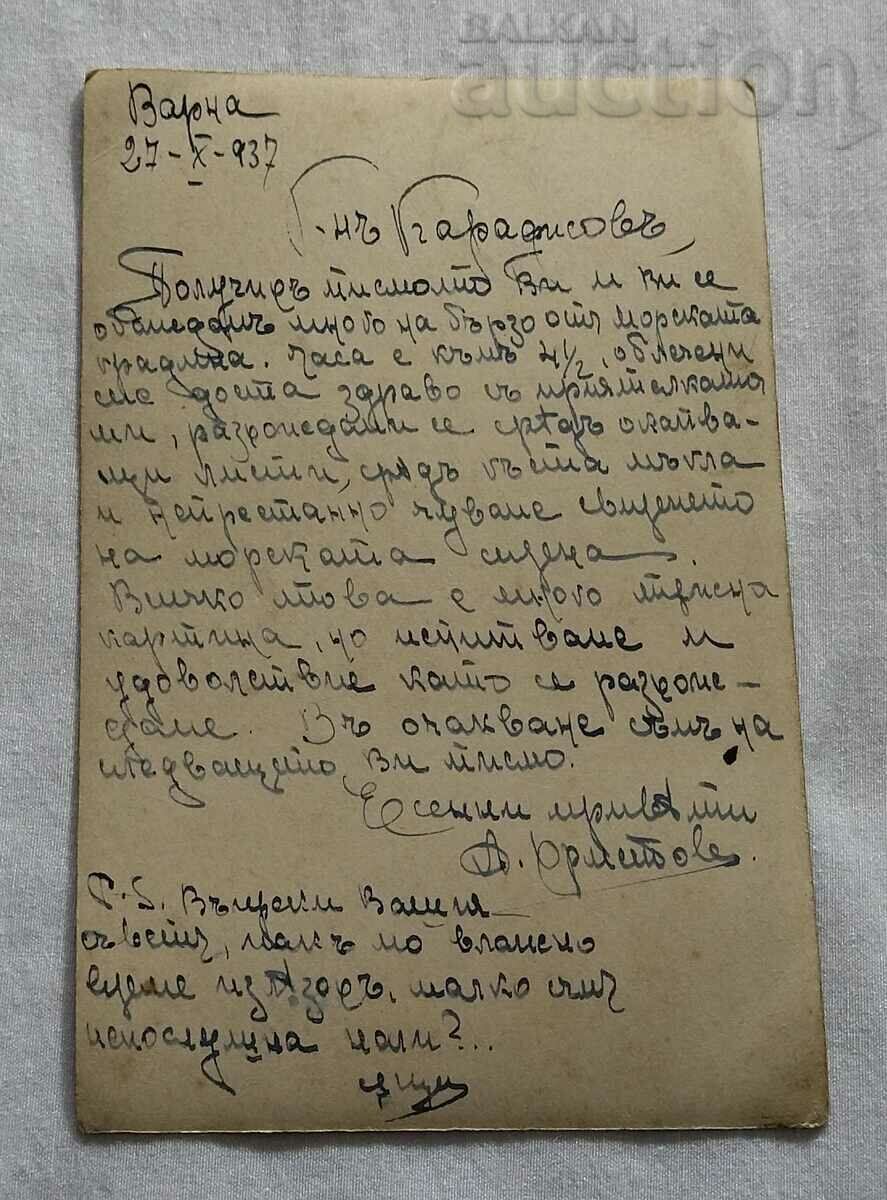 BALKAN
auction
Варна
27-X-937
Г-нъ
Получихъ писмото Ви и Ви се
обаждамъ много на бързо отъ морската
градина. Часа е къмъ 4½, облечени
сме доста здраво съ приятелката
ми, разхождаме се срѣдъ окапва-
щи листи, срѣдъ гъста мъгла
и непрестанно чуваме свиренето
на морската сирена.
Всичко това е много тъжна
картина, но изпитваме и
удоволствие като се разхож-
даме. Въ очакване съмъ на
следващето Ви писмо.
Есенни привѣти
А.
P.S. Въпрѣки Вашия
съветъ, пакъ по влажно
време излѣзохъ, малко съмъ
непослушна нали?...